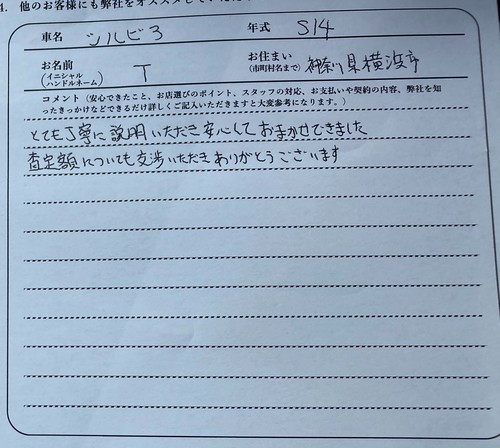 4. 他のお客様にも弊社をオススメして
車名 シルビア 年式 S14
お名前 (イニシャル ハンドルネーム) T お住まい (市町村名まで) 神奈川県横浜市
コメント（安心できたこと、お店選びのポイント、スタッフの対応、お支払いや契約の内容、弊社を知
ったきっかけなどできるだけ詳しくご記入いただきますと大変参考になります。）
とても丁寧に説明いただき安心しておまかせできました
査定額についても交渉いただきありがとうございます